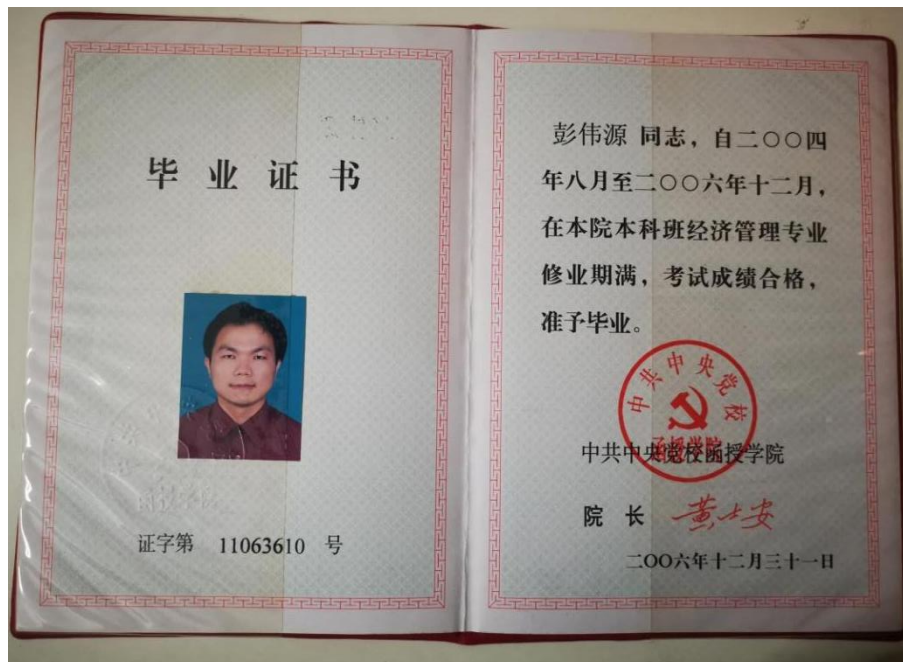 毕业证书
证字第 11063610 号
彭伟源 同志，自二〇〇四
年八月至二〇〇六年十二月，
在本院本科班经济管理专业
修业期满，考试成绩合格，
准予毕业。
中共中央党校
函授学院
中共中央党校函授学院
院 长 黄士安
二〇〇六年十二月三十一日